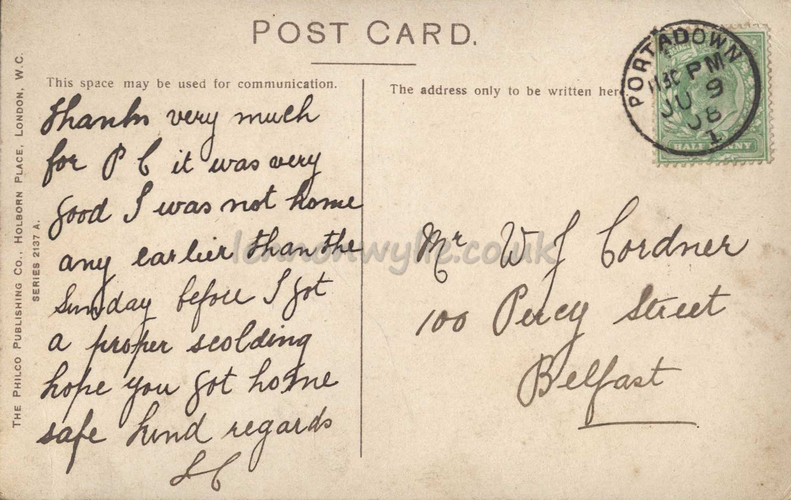 POST CARD.
This space may be used for communication.
The address only to be written here
THE PHILCO PUBLISHING CO., HOLBORN PLACE, LONDON, W.C.
SERIES 2137 A.
PORTADOWN
11.30 PM
JU 9
08
1
HALFPENNY
thanks very much
for P C it was very
good I was not home
any earlier than the
Sunday before I got
a proper scolding
hope you got home
safe kind regards
SC
Mr W J Cordner
100 Percy Street
Belfast
lennonwylie.co.uk